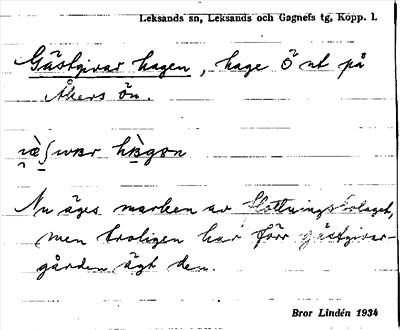 Leksands sn, Leksands och Gagnefs tg, Kopp. l.
Gästgivar hagen, hage Ö nt på
Åkers ön.
hagən
Nu äges marken av flottningsbolaget,
men troligen har förr gästgivar-
gården ägt den.
Bror Lindén 1934